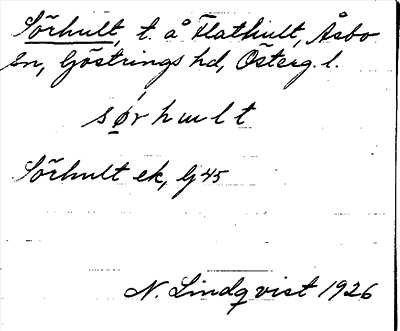 Sörhult, t. å Flathult, Åsbo
sn, Göstrings hd, Österg. l.
sǿrhult
Sörhult ek, Gj 45
N. Lindqvist 1926